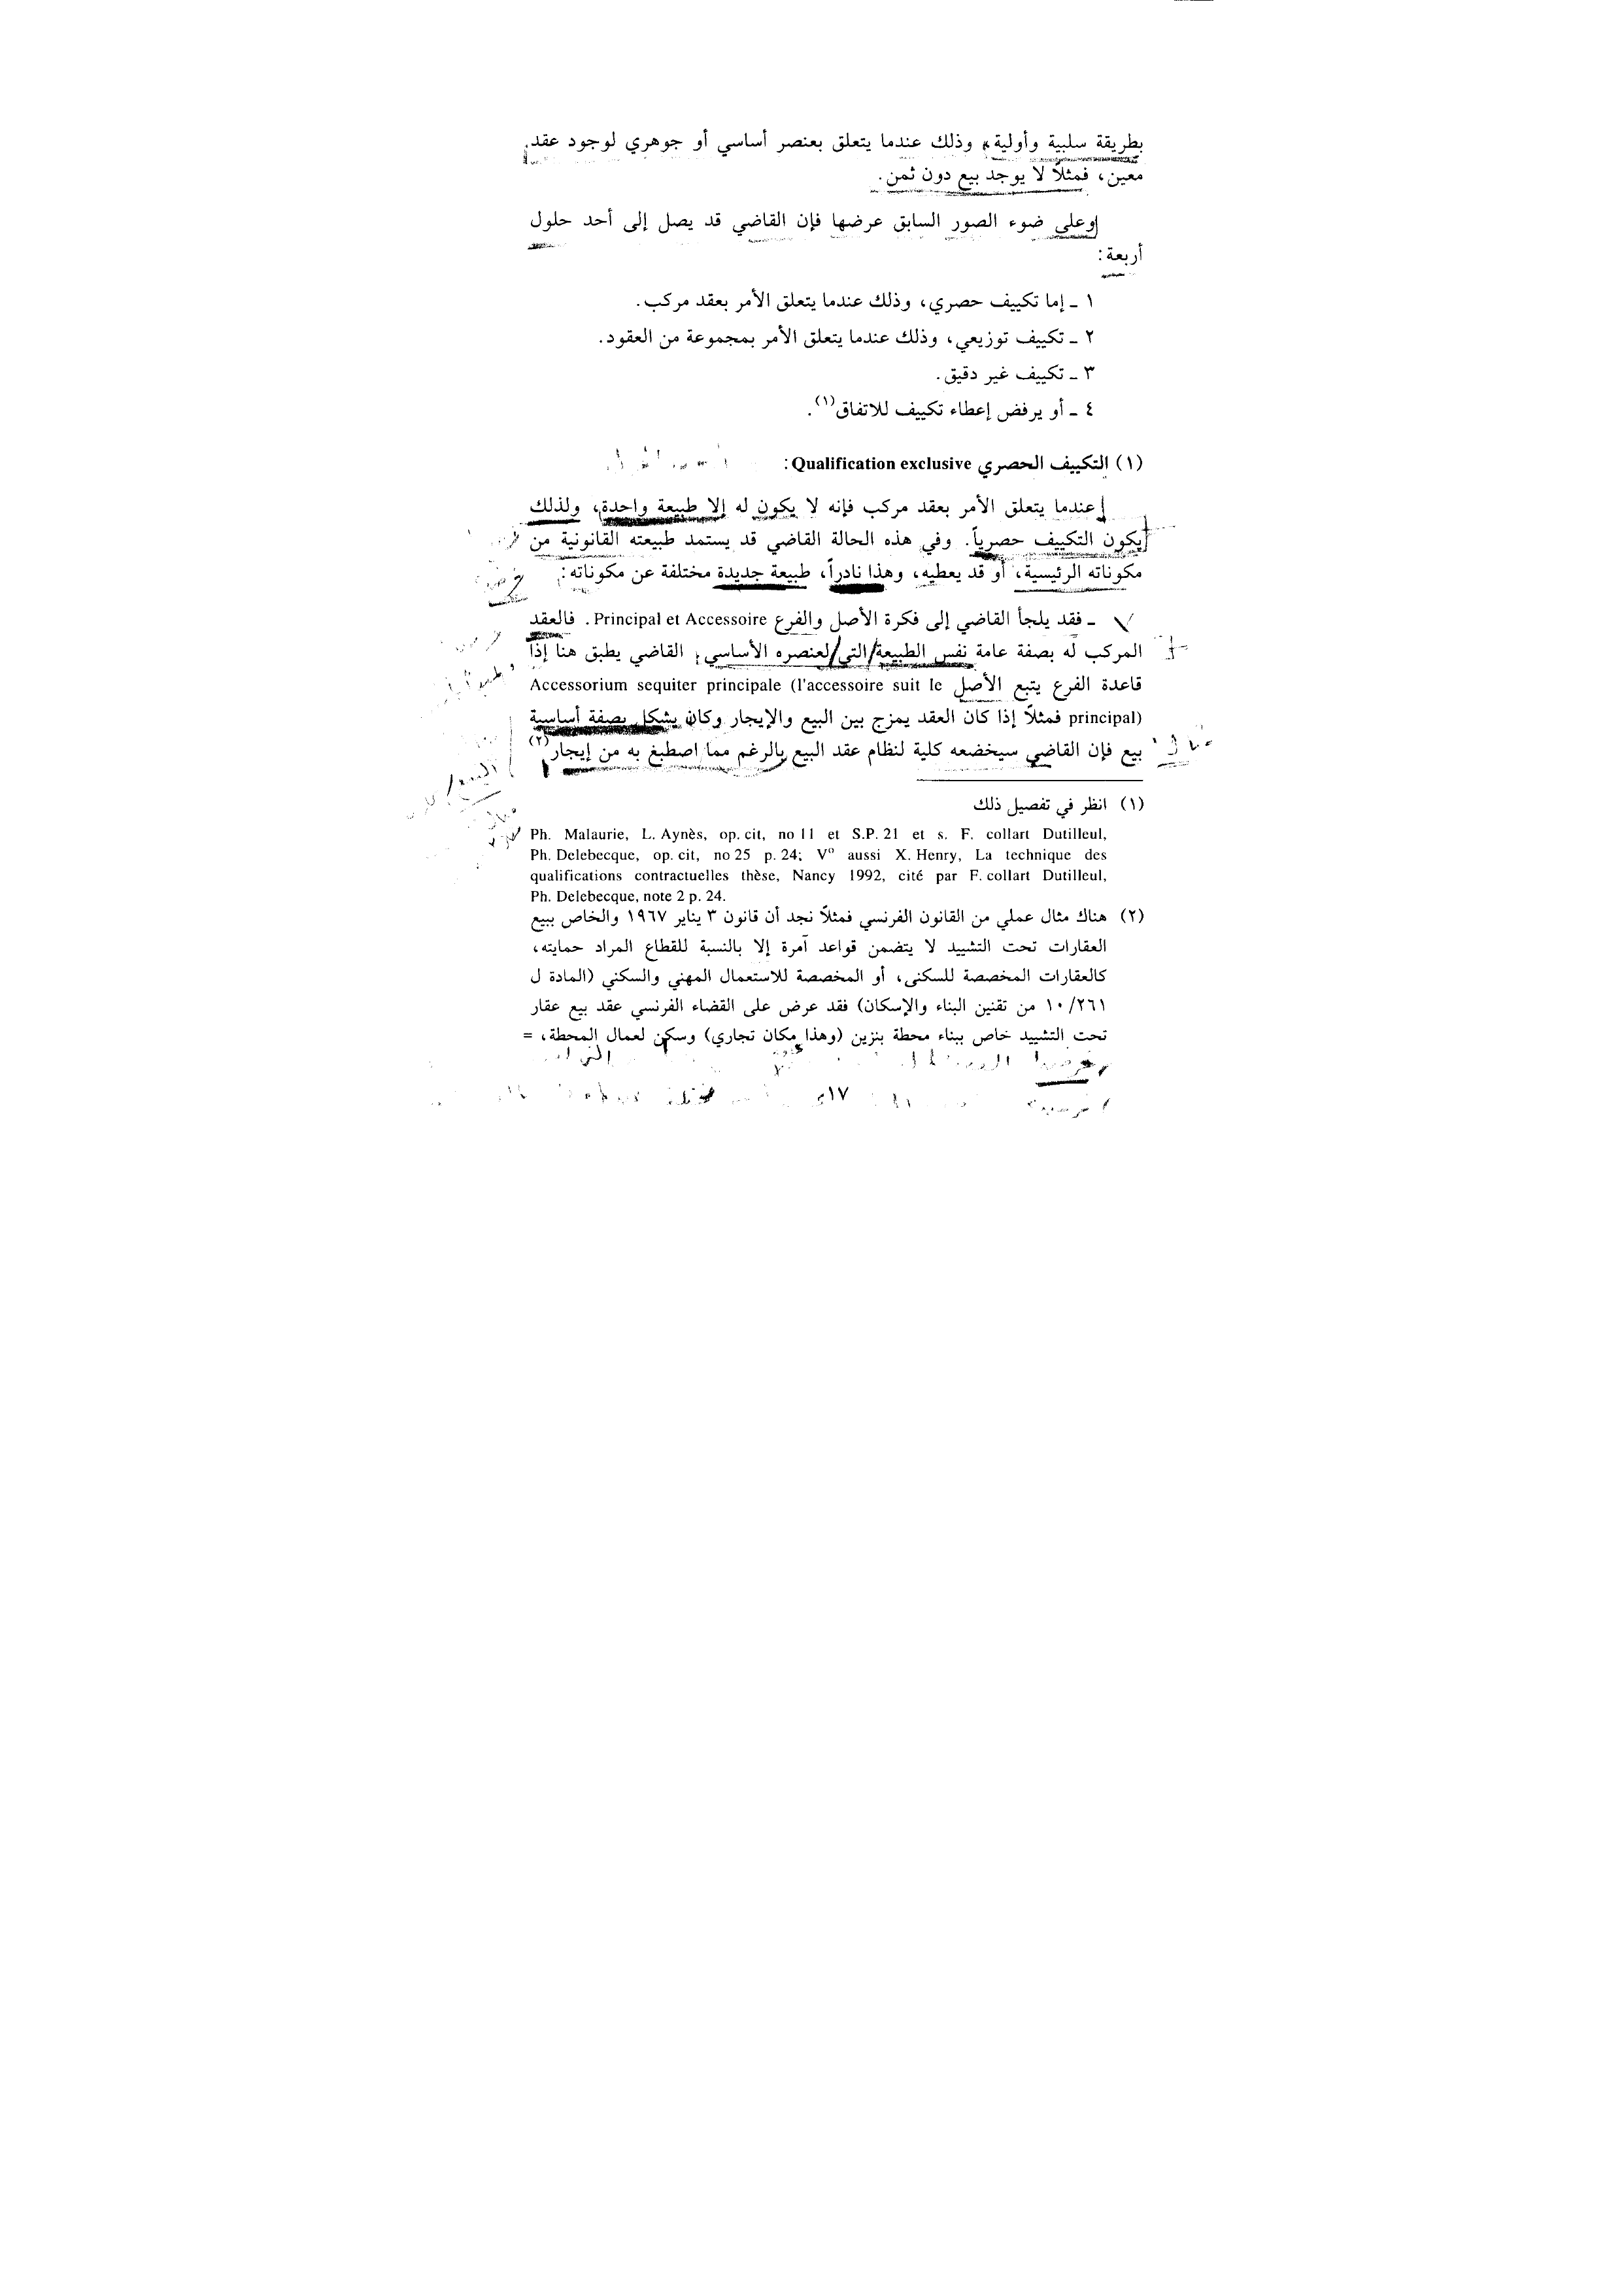 بطريقة سلبية وأولية، وذلك عندما يتعلق بعنصر أساسي أو جوهري لوجود عقد
معين، فمثلاً لا يوجد بيع دون ثمن.
وعلى ضوء الصور السابق عرضها فإن القاضي قد يصل إلى أحد حلول
أربعة:
١ ـ إما تكييف حصري، وذلك عندما يتعلق الأمر بعقد مركب.
٢ ـ تكييف توزيعي، وذلك عندما يتعلق الأمر بمجموعة من العقود.
٣ ـ تكييف غير دقيق.
٤ ـ أو يرفض إعطاء تكييف للاتفاق(١).
(١) التكييف الحصري Qualification exclusive:
عندما يتعلق الأمر بعقد مركب فإنه لا يكون له إلا طبيعة واحدة، ولذلك
يكون التكييف حصرياً. وفي هذه الحالة القاضي قد يستمد طبيعته القانونية من
مكوناته الرئيسية، أو قد يعطيه، وهذا نادراً، طبيعة جديدة مختلفة عن مكوناته:
ـ فقد يلجأ القاضي إلى فكرة الأصل والفرع Principal et Accessoire. فالعقد
المركب له بصفة عامة نفس الطبيعة التي لعنصره الأساسي، القاضي يطبق هنا إذاً
قاعدة الفرع يتبع الأصل Accessorium sequiter principale (l'accessoire suit le
principal) فمثلاً إذا كان العقد يمزج بين البيع والإيجار وكان يشكل بصفة أساسية
بيع فإن القاضي سيخضعه كلية لنظام عقد البيع بالرغم مما اصطبغ به من إيجار(٢)
(١) انظر في تفصيل ذلك
Ph. Malaurie, L. Aynès, op. cit, no 11 et S.P. 21 et s. F. collart Dutilleul,
Ph. Delebecque, op. cit, no 25 p. 24; Vº aussi X. Henry, La technique des
qualifications contractuelles thèse, Nancy 1992, cité par F. collart Dutilleul,
Ph. Delebecque, note 2 p. 24.
(٢) هناك مثال عملي من القانون الفرنسي فمثلاً نجد أن قانون ٣ يناير ١٩٦٧ والخاص ببيع
العقارات تحت التشييد لا يتضمن قواعد آمرة إلا بالنسبة للقطاع المراد حمايته،
كالعقارات المخصصة للسكنى، أو المخصصة للاستعمال المهني والسكني (المادة ل
١٠/٢٦١ من تقنين البناء والإسكان) فقد عرض على القضاء الفرنسي عقد بيع عقار
تحت التشييد خاص ببناء محطة بنزين (وهذا مكان تجاري) وسكن لعمال المحطة، =
١٧